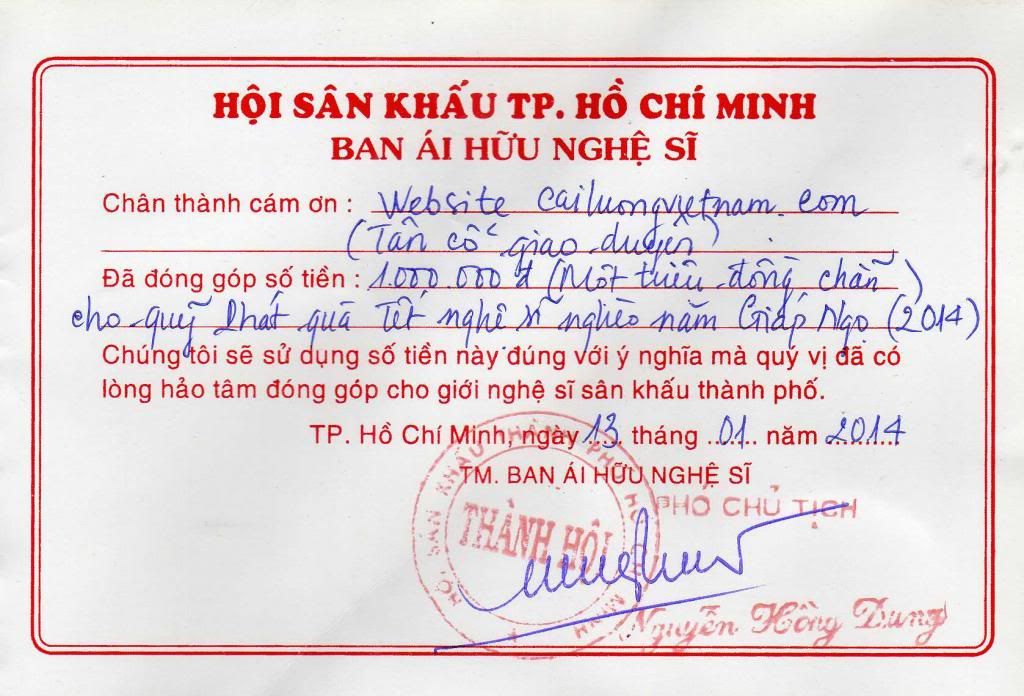 HỘI SÂN KHẤU TP. HỒ CHÍ MINH
BAN ÁI HỮU NGHỆ SĨ
Chân thành cám ơn : Website cailuongvietnam.com
(Tân cổ giao duyên)
Đã đóng góp số tiền : 1.000.000 đ (Một triệu đồng chẵn)
cho quỹ phát quà Tết nghệ sĩ nghèo năm Giáp Ngọ (2014)
Chúng tôi sẽ sử dụng số tiền này đúng với ý nghĩa mà quý vị đã có
lòng hảo tâm đóng góp cho giới nghệ sĩ sân khấu thành phố.
TP. Hồ Chí Minh, ngày 13 tháng 01 năm 2014
TM. BAN ÁI HỮU NGHỆ SĨ
PHÓ CHỦ TỊCH
HỘI SÂN KHẤU THÀNH PHỐ HỒ CHÍ MINH
THÀNH HỘI
Nguyễn Hồng Dung